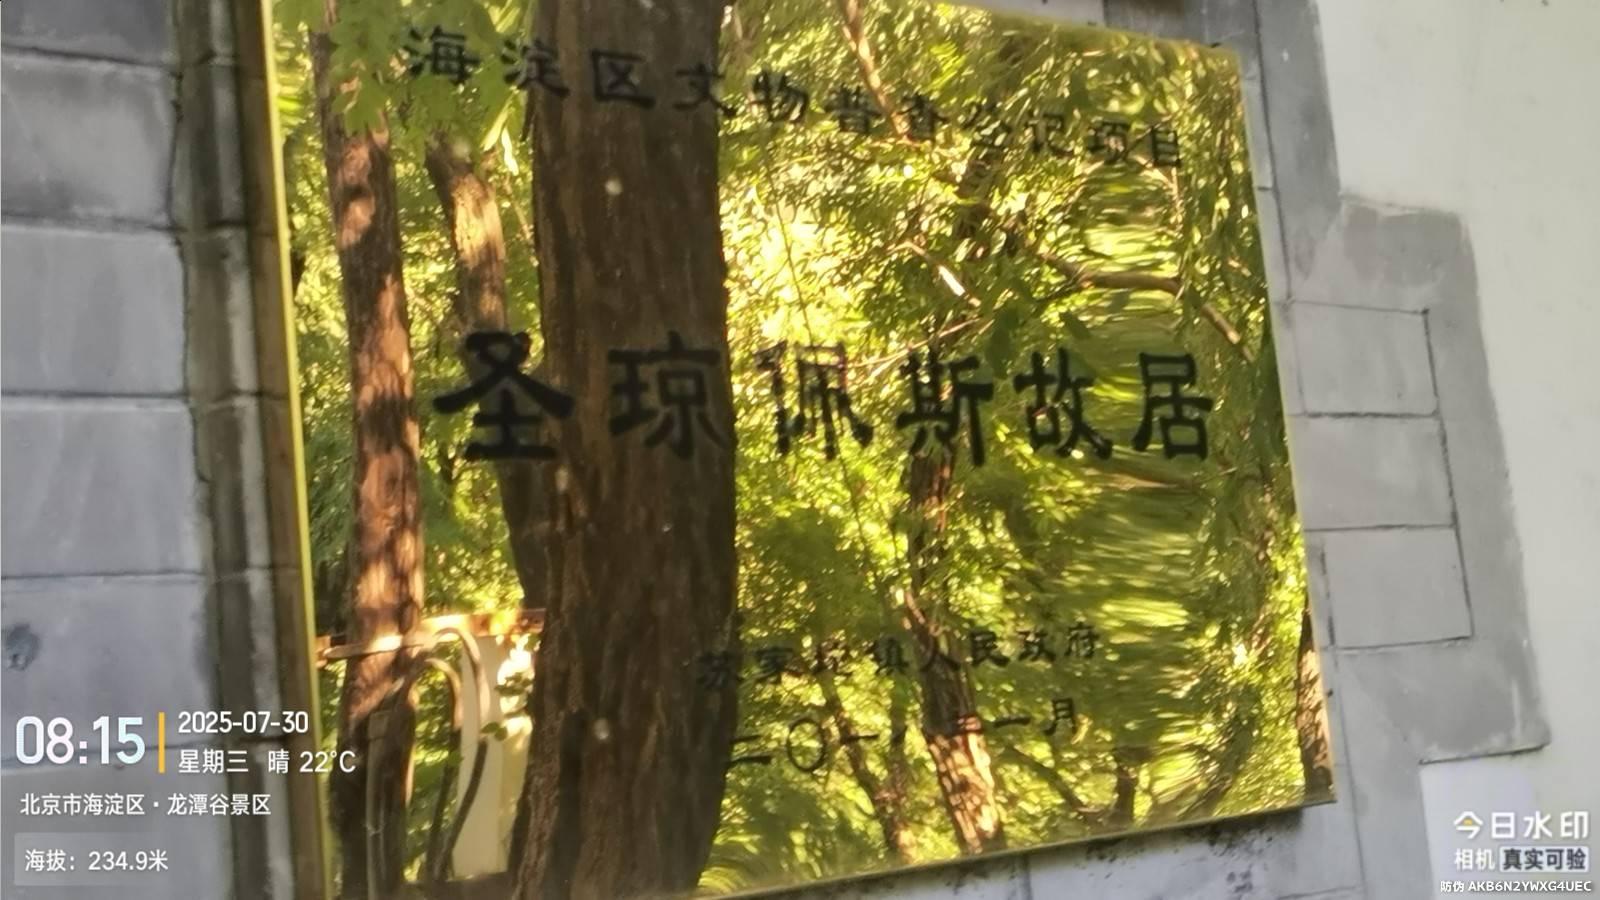 海淀区文物普查登记项目
圣琼佩斯故居
苏家坨镇人民政府
二〇一八年一月
08:15
2025-07-30
星期三 晴 22°C
北京市海淀区·龙潭谷景区
海拔：234.9米
今日水印
相机 真实可验
防伪 AKB6N2YWXG4UEC